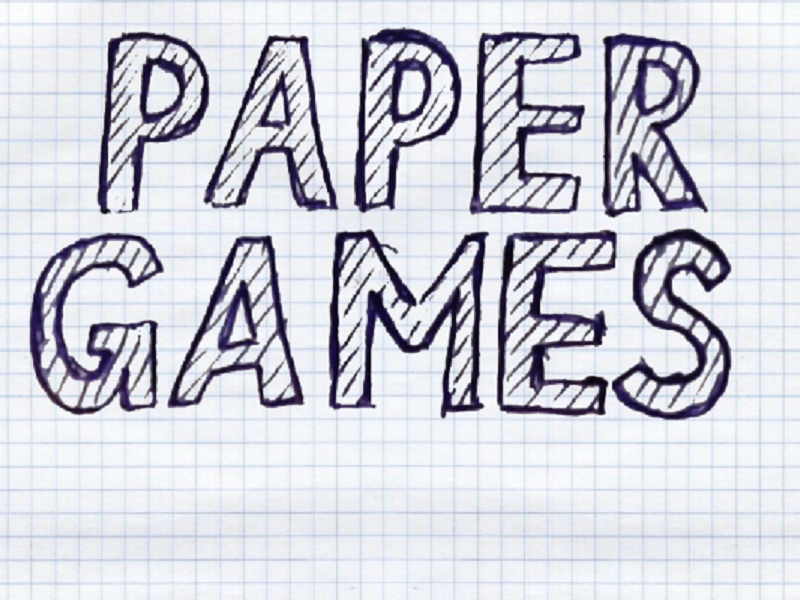 PAPER
GAMES